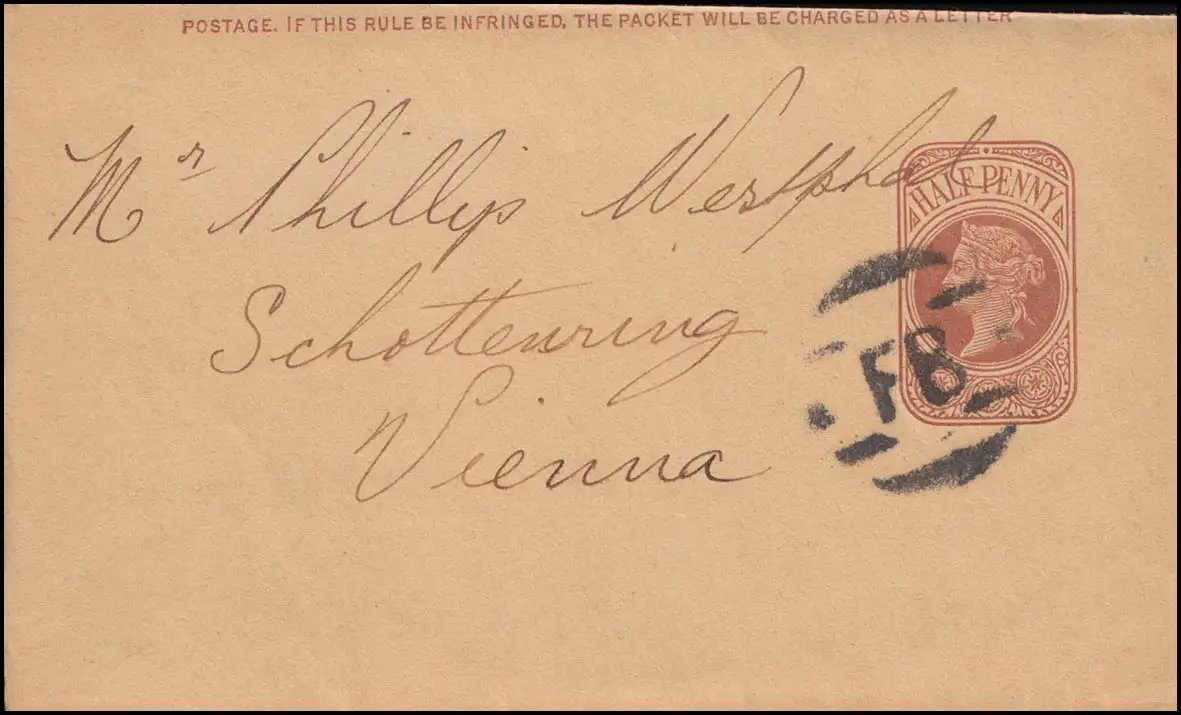 POSTAGE. IF THIS RULE BE INFRINGED, THE PACKET WILL BE CHARGED AS A LETTER
Mr Phillip Westphal
HALFPENNY
Schottenring
FB
Vienna